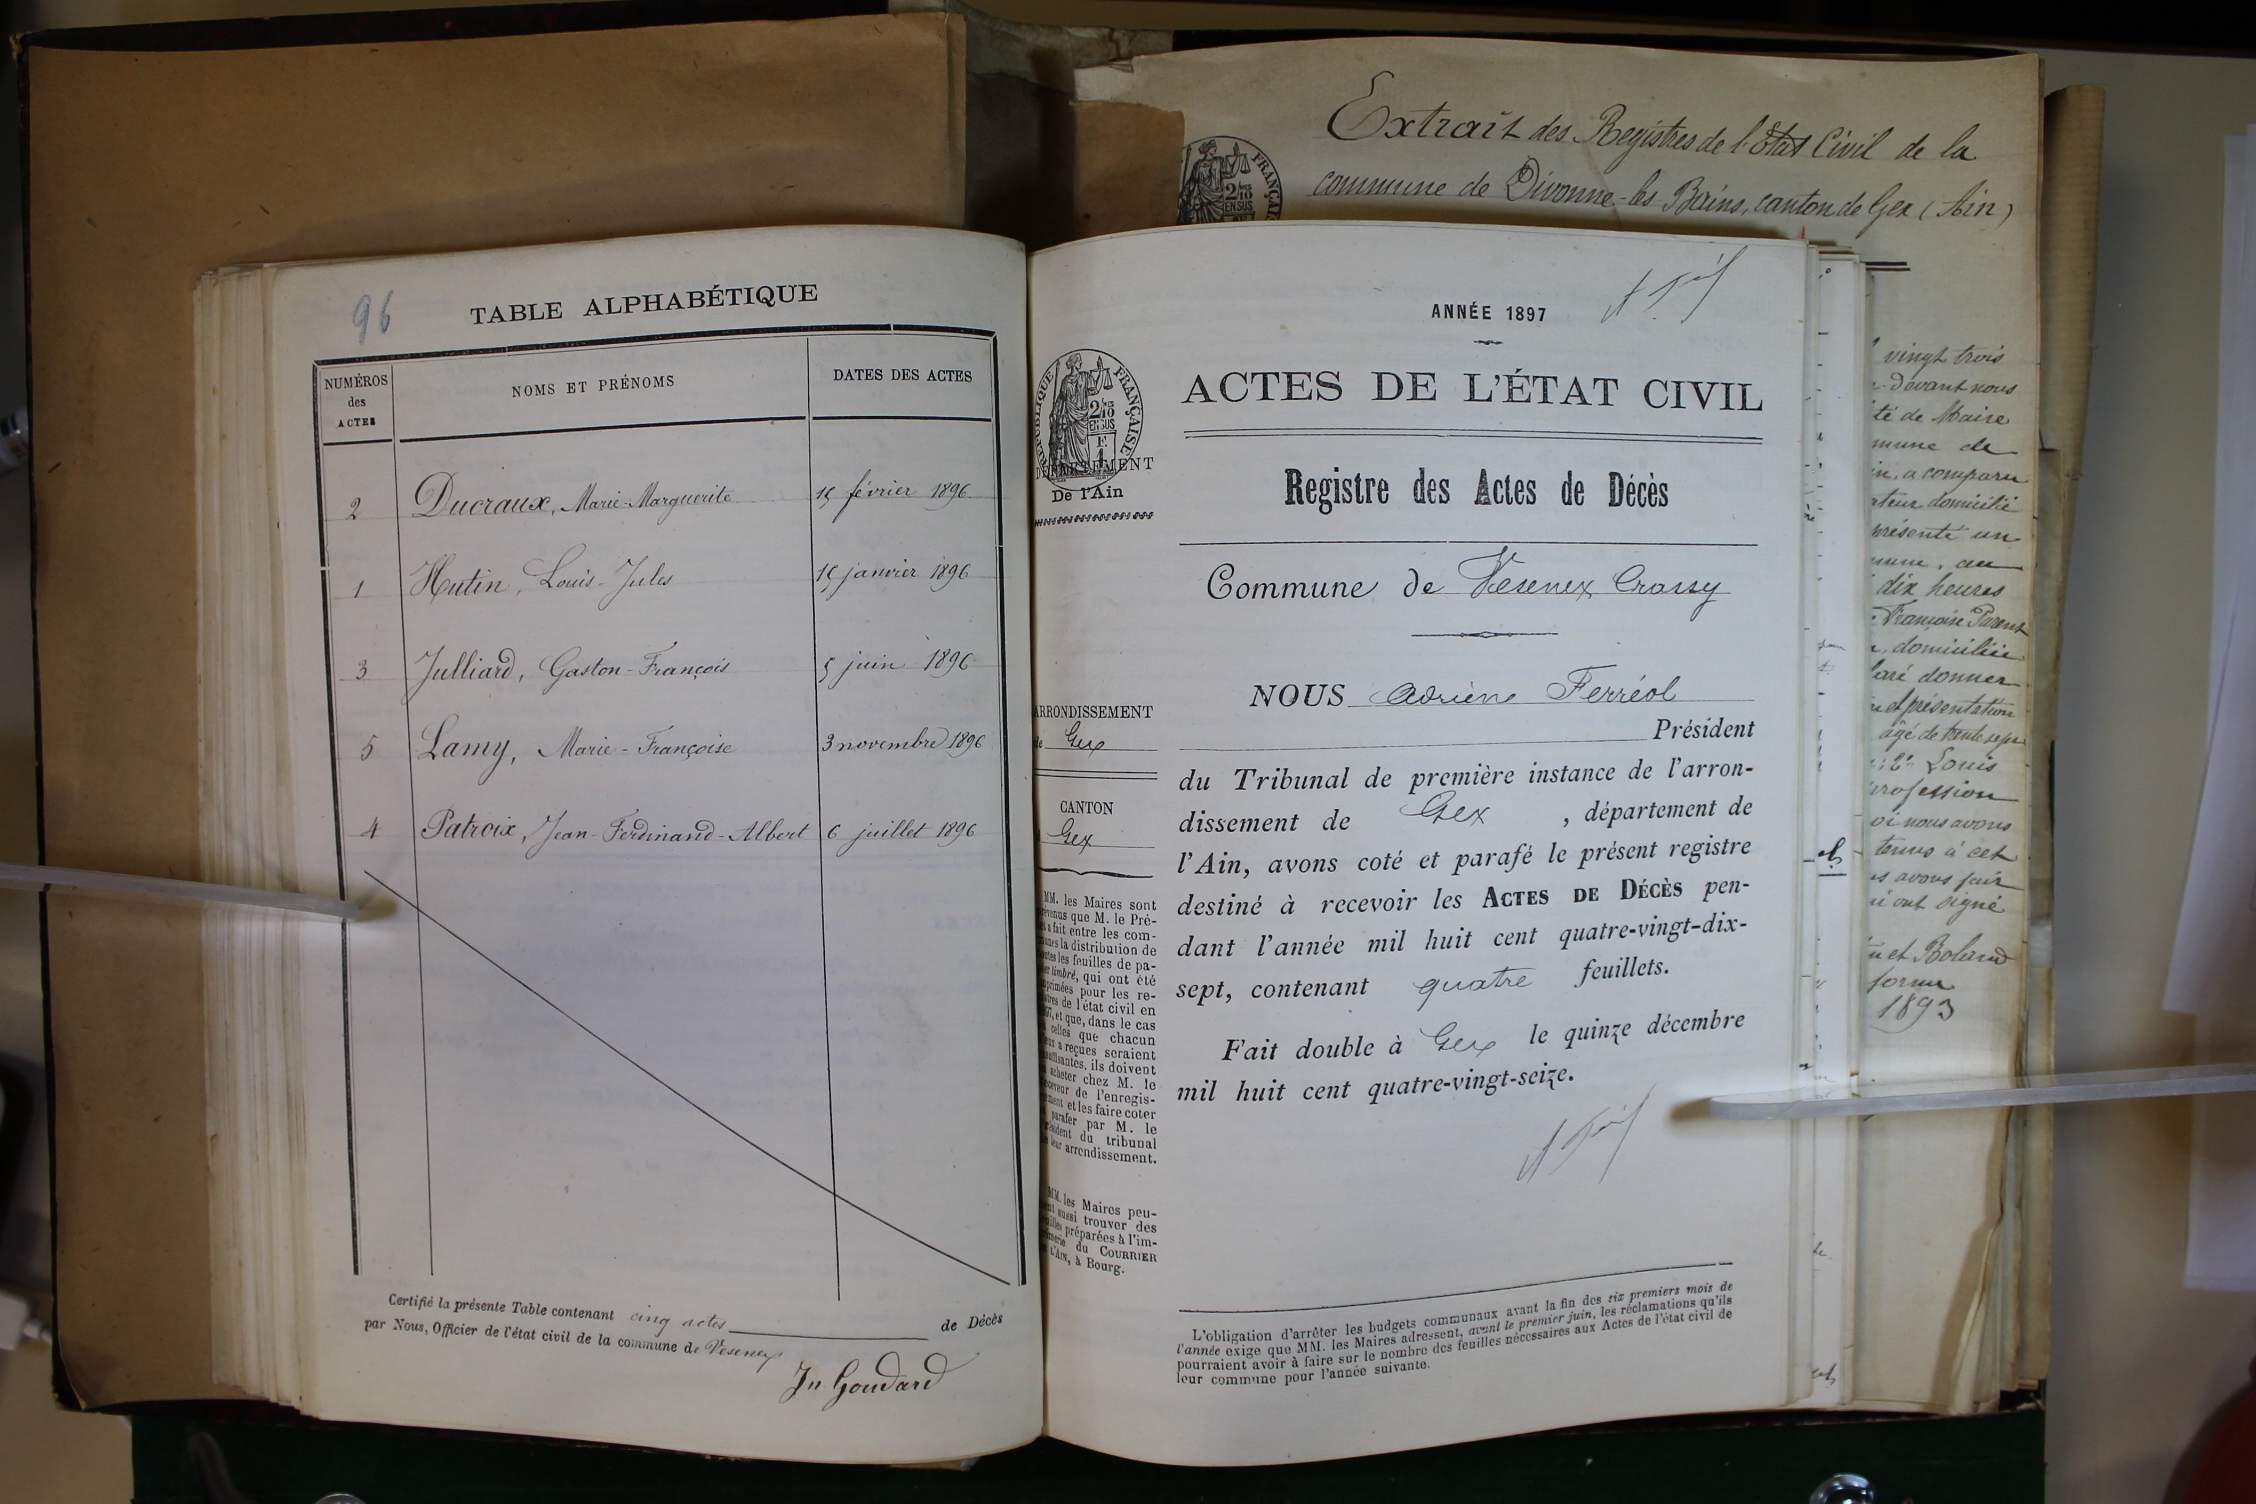 96
TABLE ALPHABÉTIQUE
NUMÉROS des ACTES
NOMS ET PRÉNOMS
DATES DES ACTES
2 Ducraux, Marie-Marguerite 15 février 1896
1 Hutin, Louis-Jules 15 janvier 1896
3 Julliard, Gaston-François 5 juin 1896
5 Lamy, Marie-Françoise 3 novembre 1896
4 Patroix, Jean-Ferdinand-Albert 6 juillet 1896
Certifié la présente Table contenant cinq actes de Décès
par Nous, Officier de l'état civil de la commune de Vesenex
Jn Goudard
Extrait des Registres de l'Etat Civil de la
commune de Divonne-les-Bains, canton de Gex (Ain)
ANNÉE 1897
ACTES DE L'ÉTAT CIVIL
Registre des Actes de Décès
Commune de Vesenex Crassy
NOUS Adrien Ferréol
Président
du Tribunal de première instance de l'arron-
dissement de Gex, département de
l'Ain, avons coté et parafé le présent registre
destiné à recevoir les ACTES DE DÉCÈS pen-
dant l'année mil huit cent quatre-vingt-dix-
sept, contenant quatre feuillets.
Fait double à Gex le quinze décembre
mil huit cent quatre-vingt-seize.
L'obligation d'arrêter les budgets communaux avant la fin des six premiers mois de
l'année exige que MM. les Maires adressent, avant le premier juin, les réclamations qu'ils
pourraient avoir à faire sur le nombre des feuilles nécessaires aux Actes de l'état civil de
leur commune pour l'année suivante.
RÉPUBLIQUE FRANÇAISE
2/10 EN SUS
DÉPARTEMENT
De l'Ain
ARRONDISSEMENT
de Gex
CANTON
Gex
MM. les Maires sont
que M. le Pré-
a fait entre les com-
la distribution de
les feuilles de pa-
timbré, qui ont été
pour les re-
de l'état civil en
et que, dans le cas
celles que chacun
a reçues seraient
ils doivent
acheter chez M. le
de l'enregis-
et les faire coter
parafer par M. le
du tribunal
leur arrondissement.
MM. les Maires peu-
aussi trouver des
préparées à l'im-
du COURRIER
L'AIN, à Bourg.
vingt trois
devant nous
de Maire
de
a comparu
domicilié
présenté un
au
dix heures
Françoise Parent
domiciliée
donner
et présentation
âgé de trente sept
Louis
profession
nous avons
tenus à cet
avons fait
ont signé
et Boland
1893